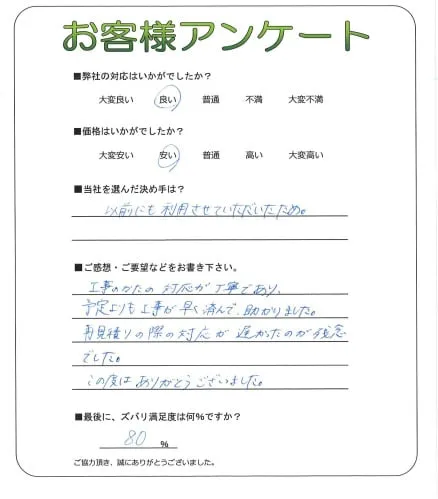 お客様アンケート
■弊社の対応はいかがでしたか？
大変良い 良い 普通 不満 大変不満
■価格はいかがでしたか？
大変安い 安い 普通 高い 大変高い
■当社を選んだ決め手は？
以前にも利用させていただいたため。
■ご感想・ご要望などをお書き下さい。
工事のかたの対応が丁寧であり、
予定よりも工事が早く済んで、助かりました。
再見積りの際の対応が遅かったのが残念
でした。
この度はありがとうございました。
■最後に、ズバリ満足度は何%ですか？
80 %
ご協力頂き、誠にありがとうございました。